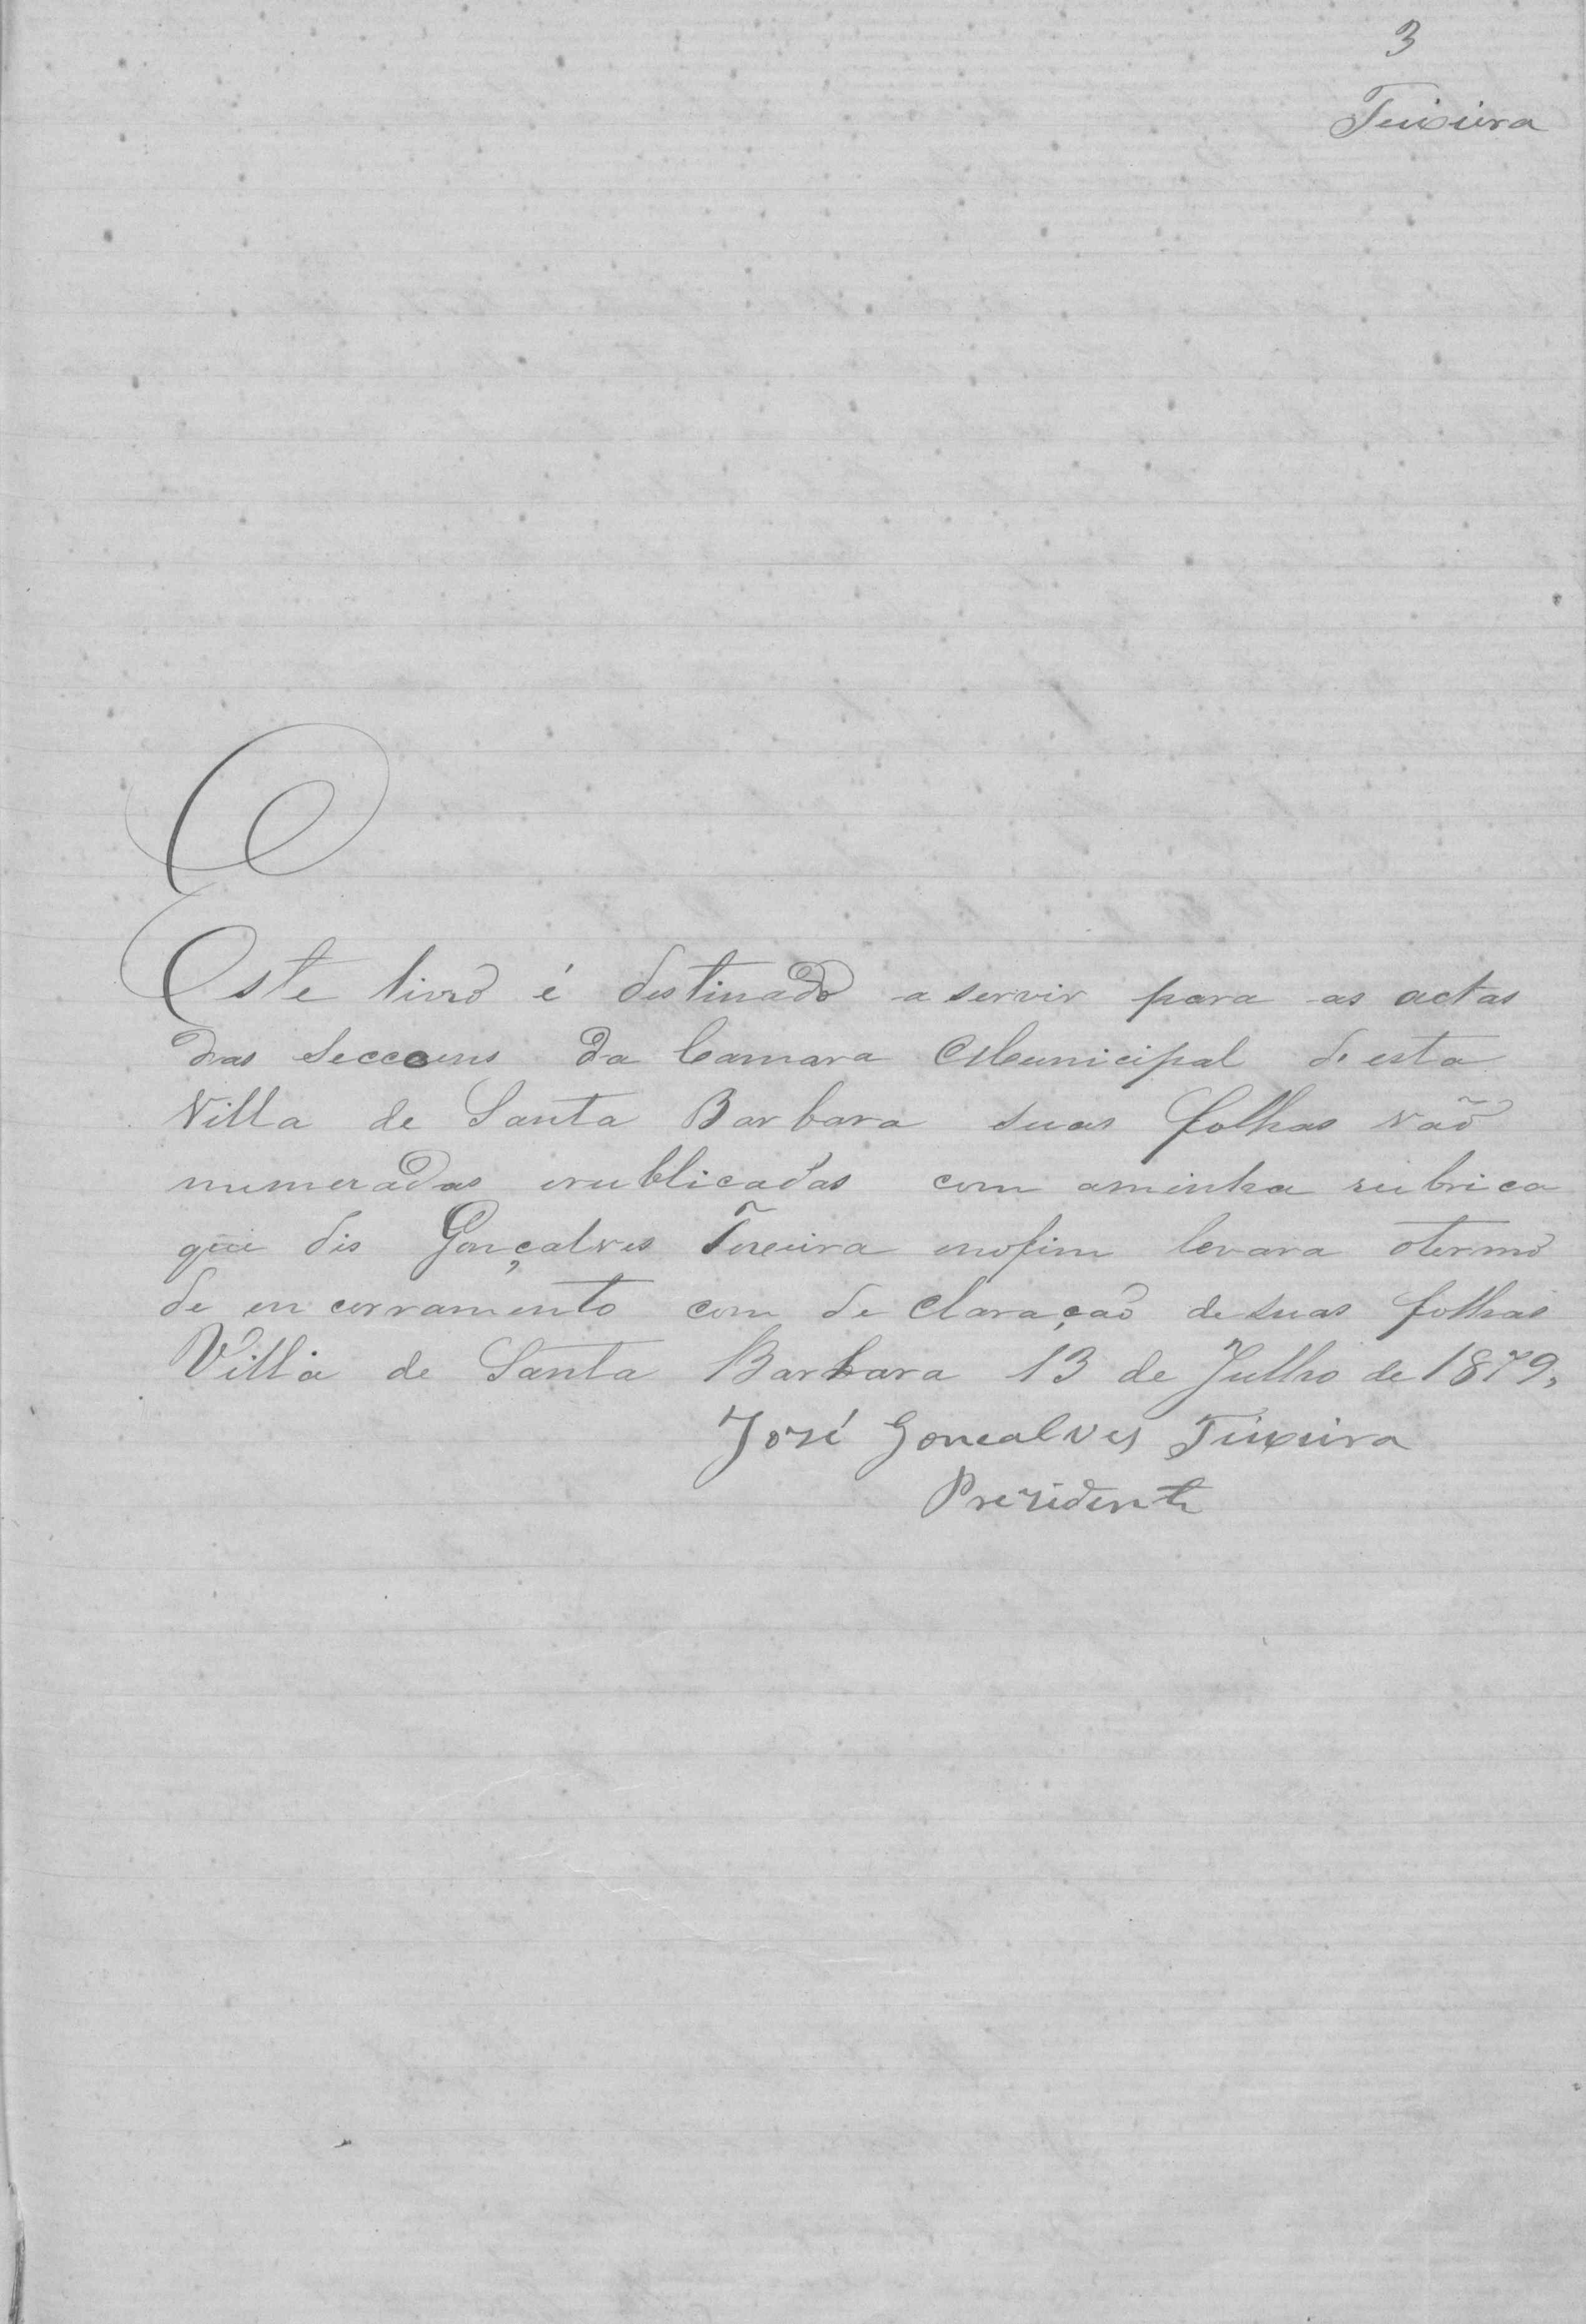 3
Teixeira
E
Este livro é destinado a servir para as actas
das Seccoens da Camara Municipal de esta
Villa de Santa Barbara suas folhas vaõ
numeradas erublicadas com aminha rubrica
que dis Gonçalves Texeira enofim levara otermo
de en cerramento com de claração de suas folhas
Villa de Santa Barbara 13 de Julho de 1879,
José Goncalves Teixeira
Prezidente